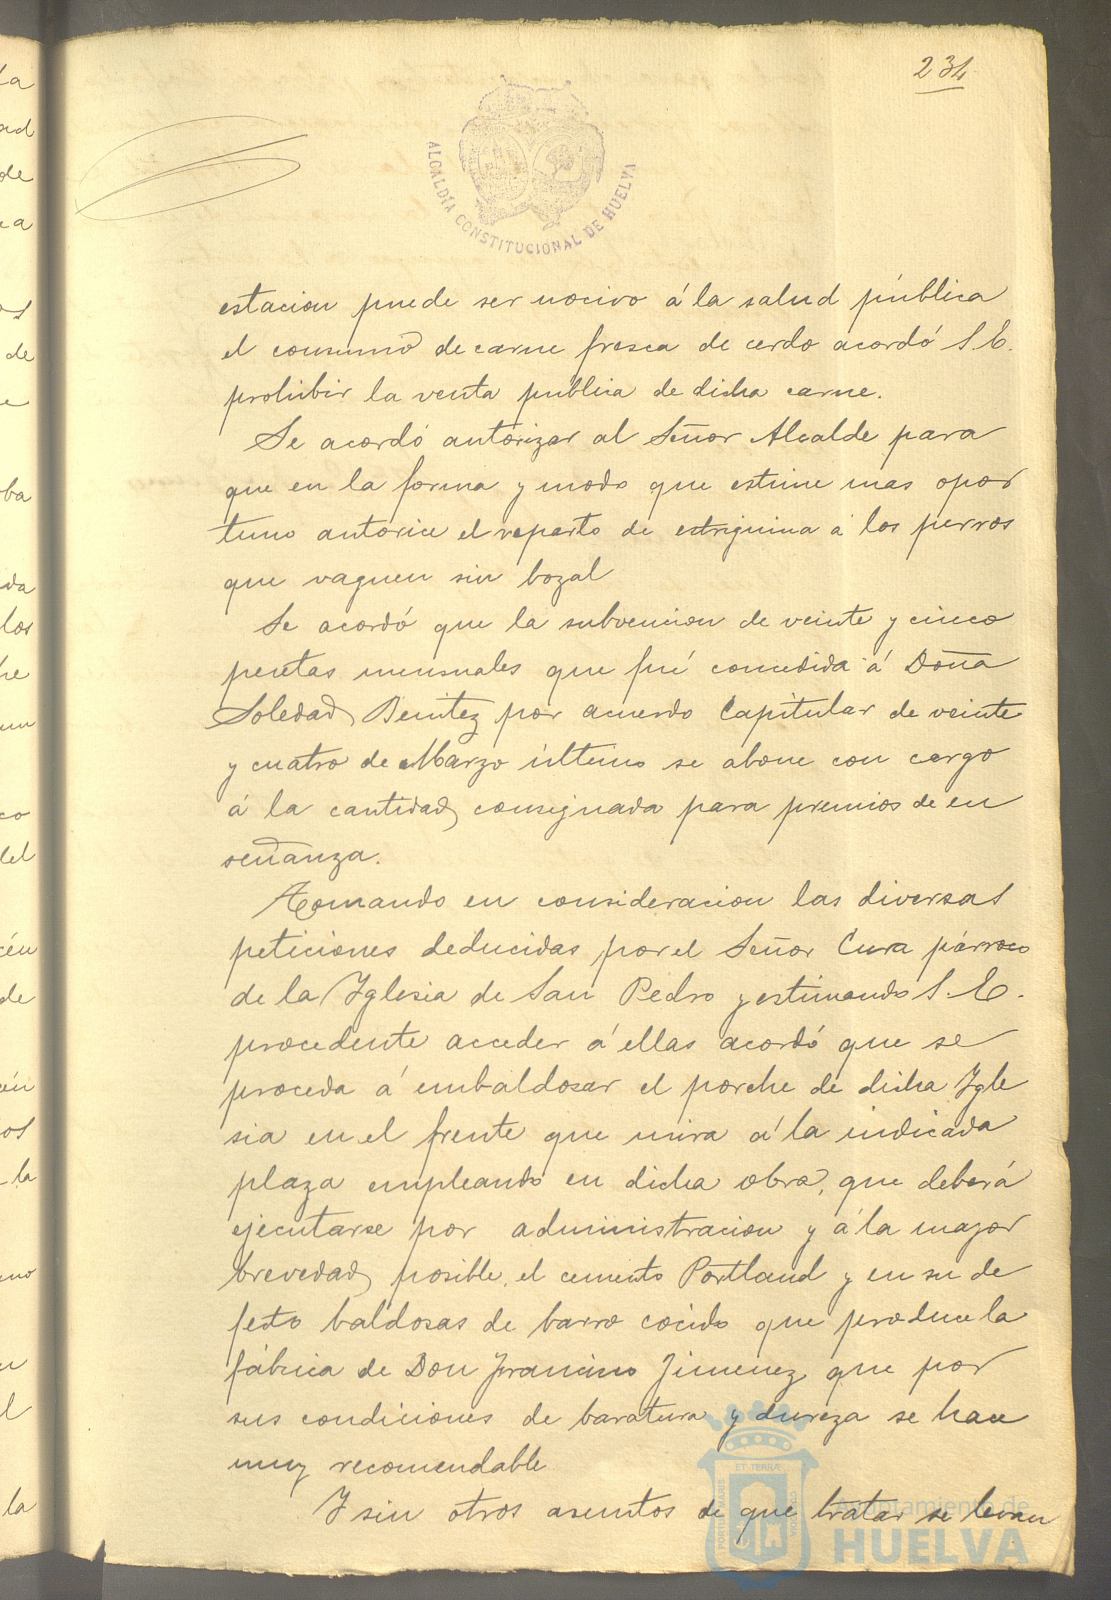 234
ALCALDÍA CONSTITUCIONAL DE HUELVA
estacion puede ser nocivo á la salud pública
el consumo de carne fresca de cerdo acordó S. E.
prohibir la venta pública de dicha carne.
Se acordó autorizar al Señor Alcalde para
que en la forma y modo que estime mas opor
tuno autorice el reparto de estrignina á los perros
que vaguen sin bozal
Se acordó que la subvencion de veinte y cinco
pesetas mensuales que fué concedida á Doña
Soledad Benitez por acuerdo Capitular de veinte
y cuatro de Marzo último se abone con cargo
á la cantidad consignada para premios de en
señanza.
Tomando en consideracion las diversas
peticiones deducidas por el Señor Cura párroco
de la Yglesia de San Pedro y estimando S. E.
procedente acceder á ellas acordó que se
proceda á embaldosar el porche de dicha Ygle
sia en el frente que mira á la indicada
plaza empleando en dicha obra, que deberá
ejecutarse por administracion y á la mayor
brevedad posible, el cemento Portland y en su de
fecto baldosas de barro cocido que produce la
fábrica de Don Francisco Jimenez que por
sus condiciones de baratura y dureza se hace
muy recomendable
Y sin otros asuntos de que tratar se levan
Ayuntamiento de
HUELVA